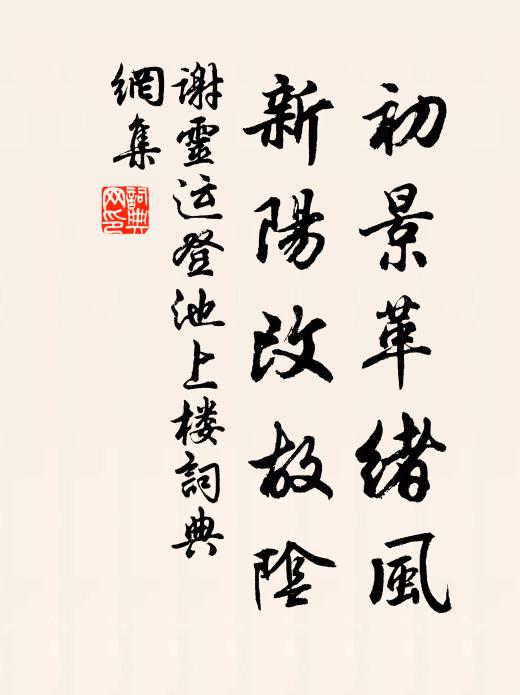 初景革緒風
新陽改故陰
謝靈运登池上楼詞典
網集
詞典网印